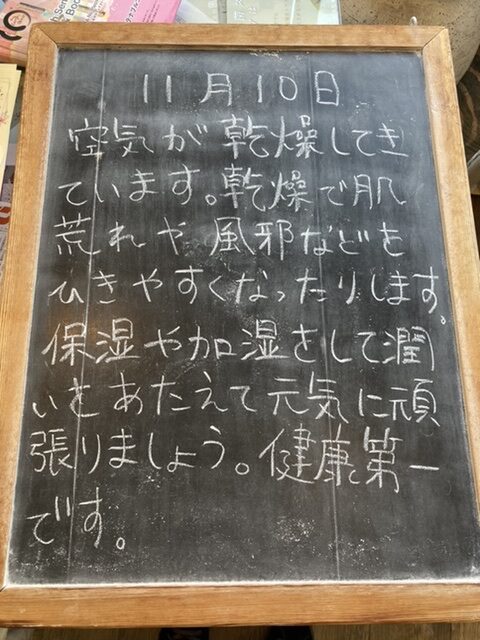 11月10日
空気が乾燥してき
ています。乾燥で肌
荒れや風邪などを
ひきやすくなったりします。
保湿や加湿をして潤
いをあたえて元気に頑
張りましょう。健康第一
です。